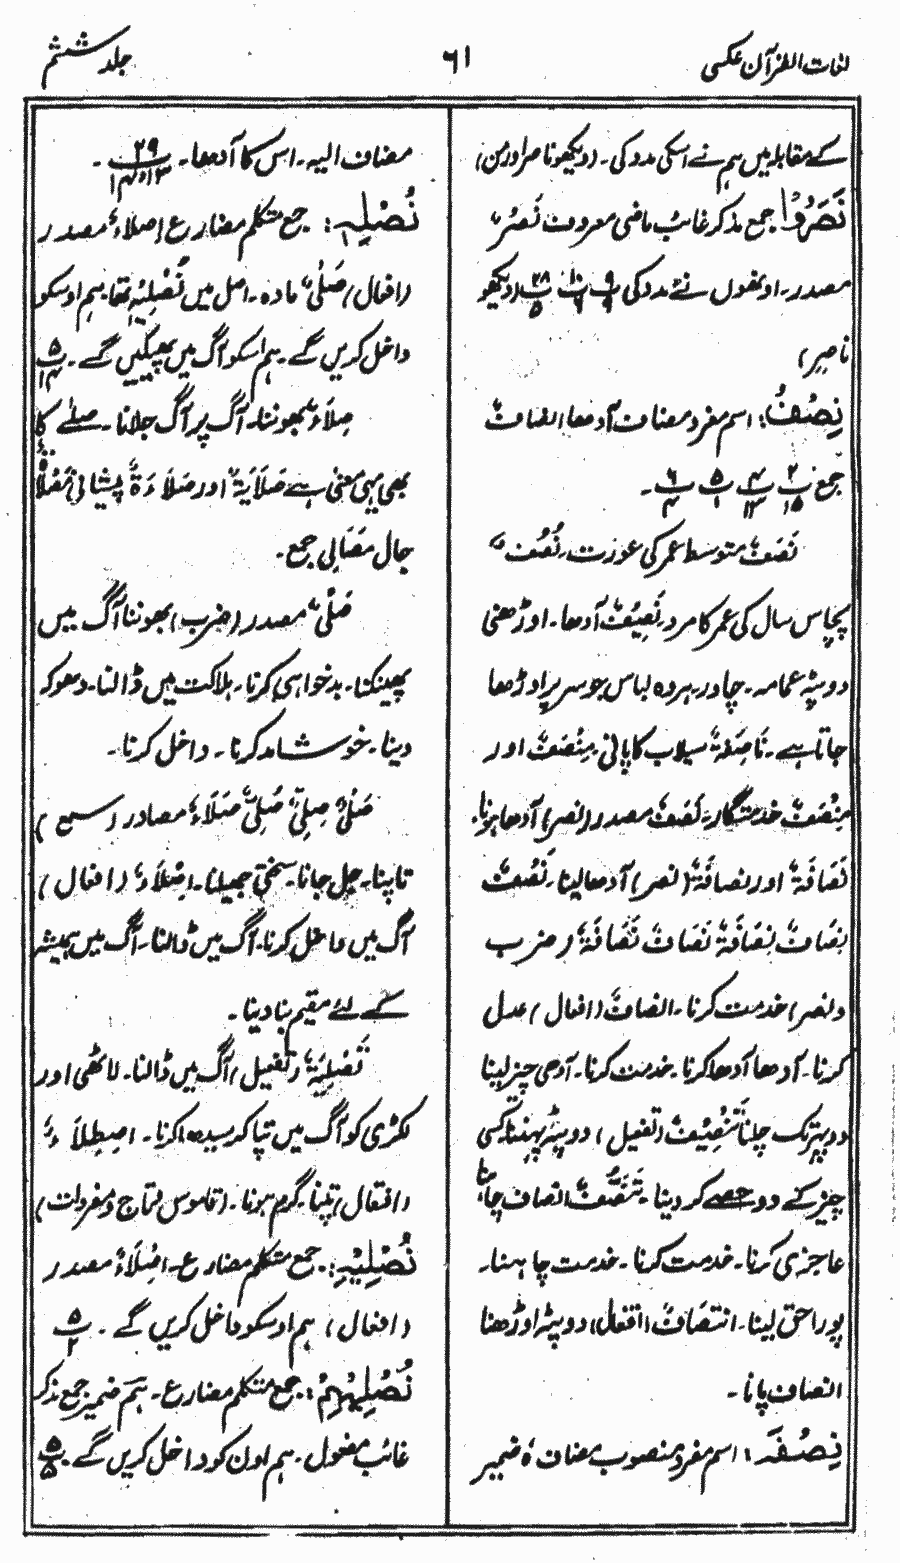 لغات القرآن عکسی
٦١
جلد ششم
کے مقابلہ میں ہم نے اسکی مدد کی۔ (دیکھو ناصر اور من)
نَصَرُوْا جمع مذکر غائب ماضی معروف نَصْرٌ
مصدر۔ اونھوں نے مدد کی پ۹ پ۱۰ پ۲۸ (دیکھو
ناصِر)
نِصْفُ: اسم مفرد مضاف آدھا انصافٌ
جمع پ۲ ۱۵ پ۴ ۱۳ پ۵ ۱ پ۶ ۴۔
نَصَفٌ متوسط عمر کی عورت۔ نُصُفٌ
پچاس سال کی عمر کا مرد۔ نَصِیْفٌ آدھا۔ اوڑھنی
دوپٹہ عمامہ۔ چادر۔ ہر وہ لباس جو سر پر اوڑھا
جاتا ہے۔ نَاصِفَۃٌ سیلاب کا پانی۔ مِنْصَفٌ اور
مِنْصَفٌ خدمتگار۔ نَصَفٌ مصدر (نصر) آدھا ہونا۔
نَصَافَۃٌ اور نصَافَۃٌ (نصر) آدھا لینا۔ نَصْفٌ
نِصَافٌ نِصَافَۃٌ نَصَافٌ نَصَافَۃٌ (ضرب
و نصر) خدمت کرنا۔ انصافٌ (افعال) عدل
کرنا۔ آدھا آدھا کرنا۔ خدمت کرنا۔ آدھی چیز لینا
دوپہر تک چلنا تَنْصِیْفٌ (تفعیل) دوپٹہ پہننا کسی
چیز کے دو حصے کر دینا۔ تَنَصُّفٌ انصاف چاہنا
عاجزی کرنا۔ خدمت کرنا۔ خدمت چاہنا۔
پورا حق لینا۔ انتصَافٌ (افتعال) دوپٹہ اوڑھنا
انصاف پانا۔
نِصْفَہٗ: اسم مفرد منصوب مضاف ہٗ ضمیر
مضاف الیہ۔ اس کا آدھا۔ پ۲۹ ۱۳و۱۴۔
نُصْلِہٖ: جمع متکلم مضارع اِصْلَاءٌ مصدر
(افعال) صَلْیٌ مادہ۔ اصل میں نُصْلِیْہِ تھا۔ ہم اوسکو
داخل کریں گے۔ ہم اسکو آگ میں پھینکیں گے۔ پ۵ ۱۴
صِلَاءٌ بھوننا۔ آگ پر آگ جلانا۔ صلے کا
بھی یہی معنٰی ہے صَلَایَۃٌ اور صَلَاءَۃٌ پیشانی
جال مَصَالِی جمع۔
صَلْیٌ مصدر (ضرب) بھوننا آگ میں
پھینکنا۔ بدخواہی کرنا۔ ہلاکت میں ڈالنا۔ دھوکہ
دینا۔ خوشامد کرنا۔ داخل کرنا۔
صَلًی صِلِیٌّ صُلِیٌّ صَلَاءٌ مصادر (سمع)
تاپنا۔ جل جانا۔ سختی جھیلنا۔ اِصْلَاءٌ (افعال)
آگ میں داخل کرنا۔ آگ میں ڈالنا۔ آگ میں ہمیشہ
کے لئے مقیم بنا دینا۔
تَصْلِیَۃٌ (تفعیل) آگ میں ڈالنا۔ لاٹھی اور
لکڑی کو آگ میں تپا کر سیدھا کرنا۔ اِصطِلَاءٌ
(افتعال) تپنا۔ گرم ہونا۔ (قاموس و تاج و مفردات)
نُصْلِیْہِ: جمع متکلم مضارع۔ اِصْلَاءٌ مصدر
(افعال) ہم اوسکو داخل کریں گے۔ پ۵ ۲
نُصْلِیْہِمْ: جمع متکلم مضارع۔ ہُم ضمیر جمع مذکر
غائب مفعول۔ ہم اون کو داخل کریں گے۔ پ۵ ۵